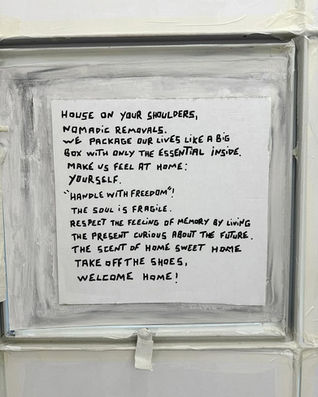 HOUSE ON YOUR SHOULDERS,
NOMADIC REMOVALS.
WE PACKAGE OUR LIVES LIKE A BIG
BOX WITH ONLY THE ESSENTIAL INSIDE.
MAKE US FEEL AT HOME:
YOURSELF.
"HANDLE WITH FREEDOM"!
THE SOUL IS FRAGILE.
RESPECT THE FEELING OF MEMORY BY LIVING
THE PRESENT CURIOUS ABOUT THE FUTURE.
THE SCENT OF HOME SWEET HOME
TAKE OFF THE SHOES,
WELCOME HOME!